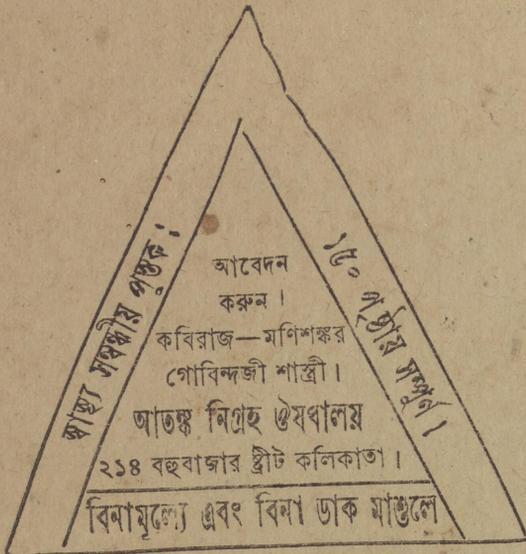 স্বাস্থ্য সম্বন্ধীয় পুস্তক।
১৫০ পৃষ্ঠায় সম্পূর্ণ।
আবেদন
করুন।
কবিরাজ—মণিশঙ্কর
গোবিন্দজী শাস্ত্রী।
আতঙ্ক নিগ্রহ ঔষধালয়
২১৪ বহুবাজার ষ্ট্রীট কলিকাতা।
বিনামূল্যে এবং বিনা ডাক মাশুলে